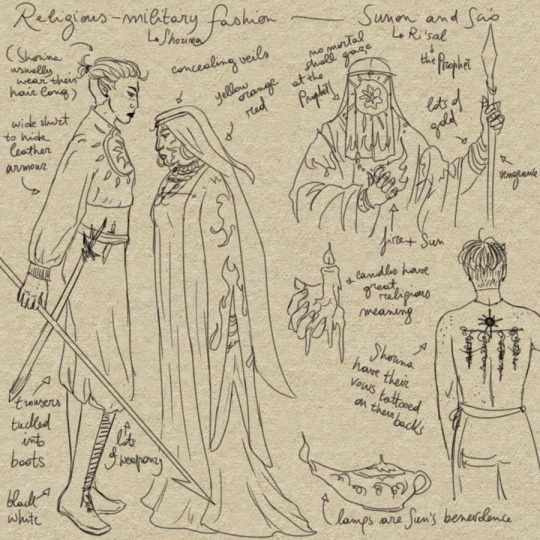 Religious-military fashion — Sunon and Scio
↳ Shorina
↳ Ri'sal
(Shorina
usually
wear their
hair long)
concealing veils
yellow orange
red
no mortal
shall gaze
at the
Prophet
the Prophet
lots of
gold
vengeance
wide shirt
to hide
leather
armour
fire + Sun
candles have
great
religious
meaning
Shorina
have their
vows tattooed
on their backs
trousers
tucked
into
boots
lots
of weapons
black
white
lamps are Sun's benevolence